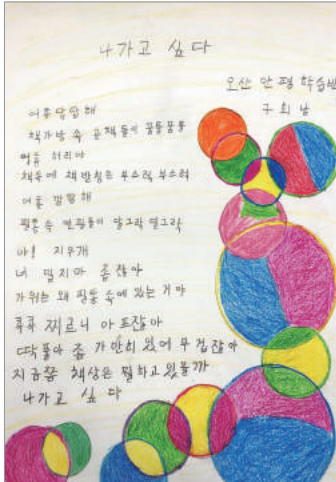 나가고 싶다
오산 안평 학습반
구희남
어휴 답답해
책가방 속 공책들이 꿈틀꿈틀
어휴 허리야
책속에 책받침은 부스럭 부스럭
어휴 깜깜해
필통 속 연필들이 달그락 덜그락
야! 지우개
너 밀지마 좁잖아
가위는 왜 필통 속에 있는 거야
콕콕 찌르니 아프잖아
딱풀아 좀 가만히 있어 무겁잖아
지금쯤 책상은 뭘하고 있을까
나가고 싶다